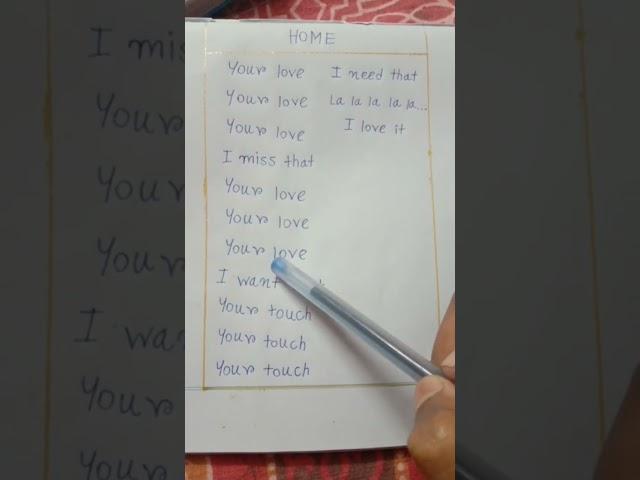 HOME
Your love
Your love
Your love
I miss that
Your love
Your love
Your love
I want
Your touch
Your touch
Your touch
I need that
La la la la la...
I love it